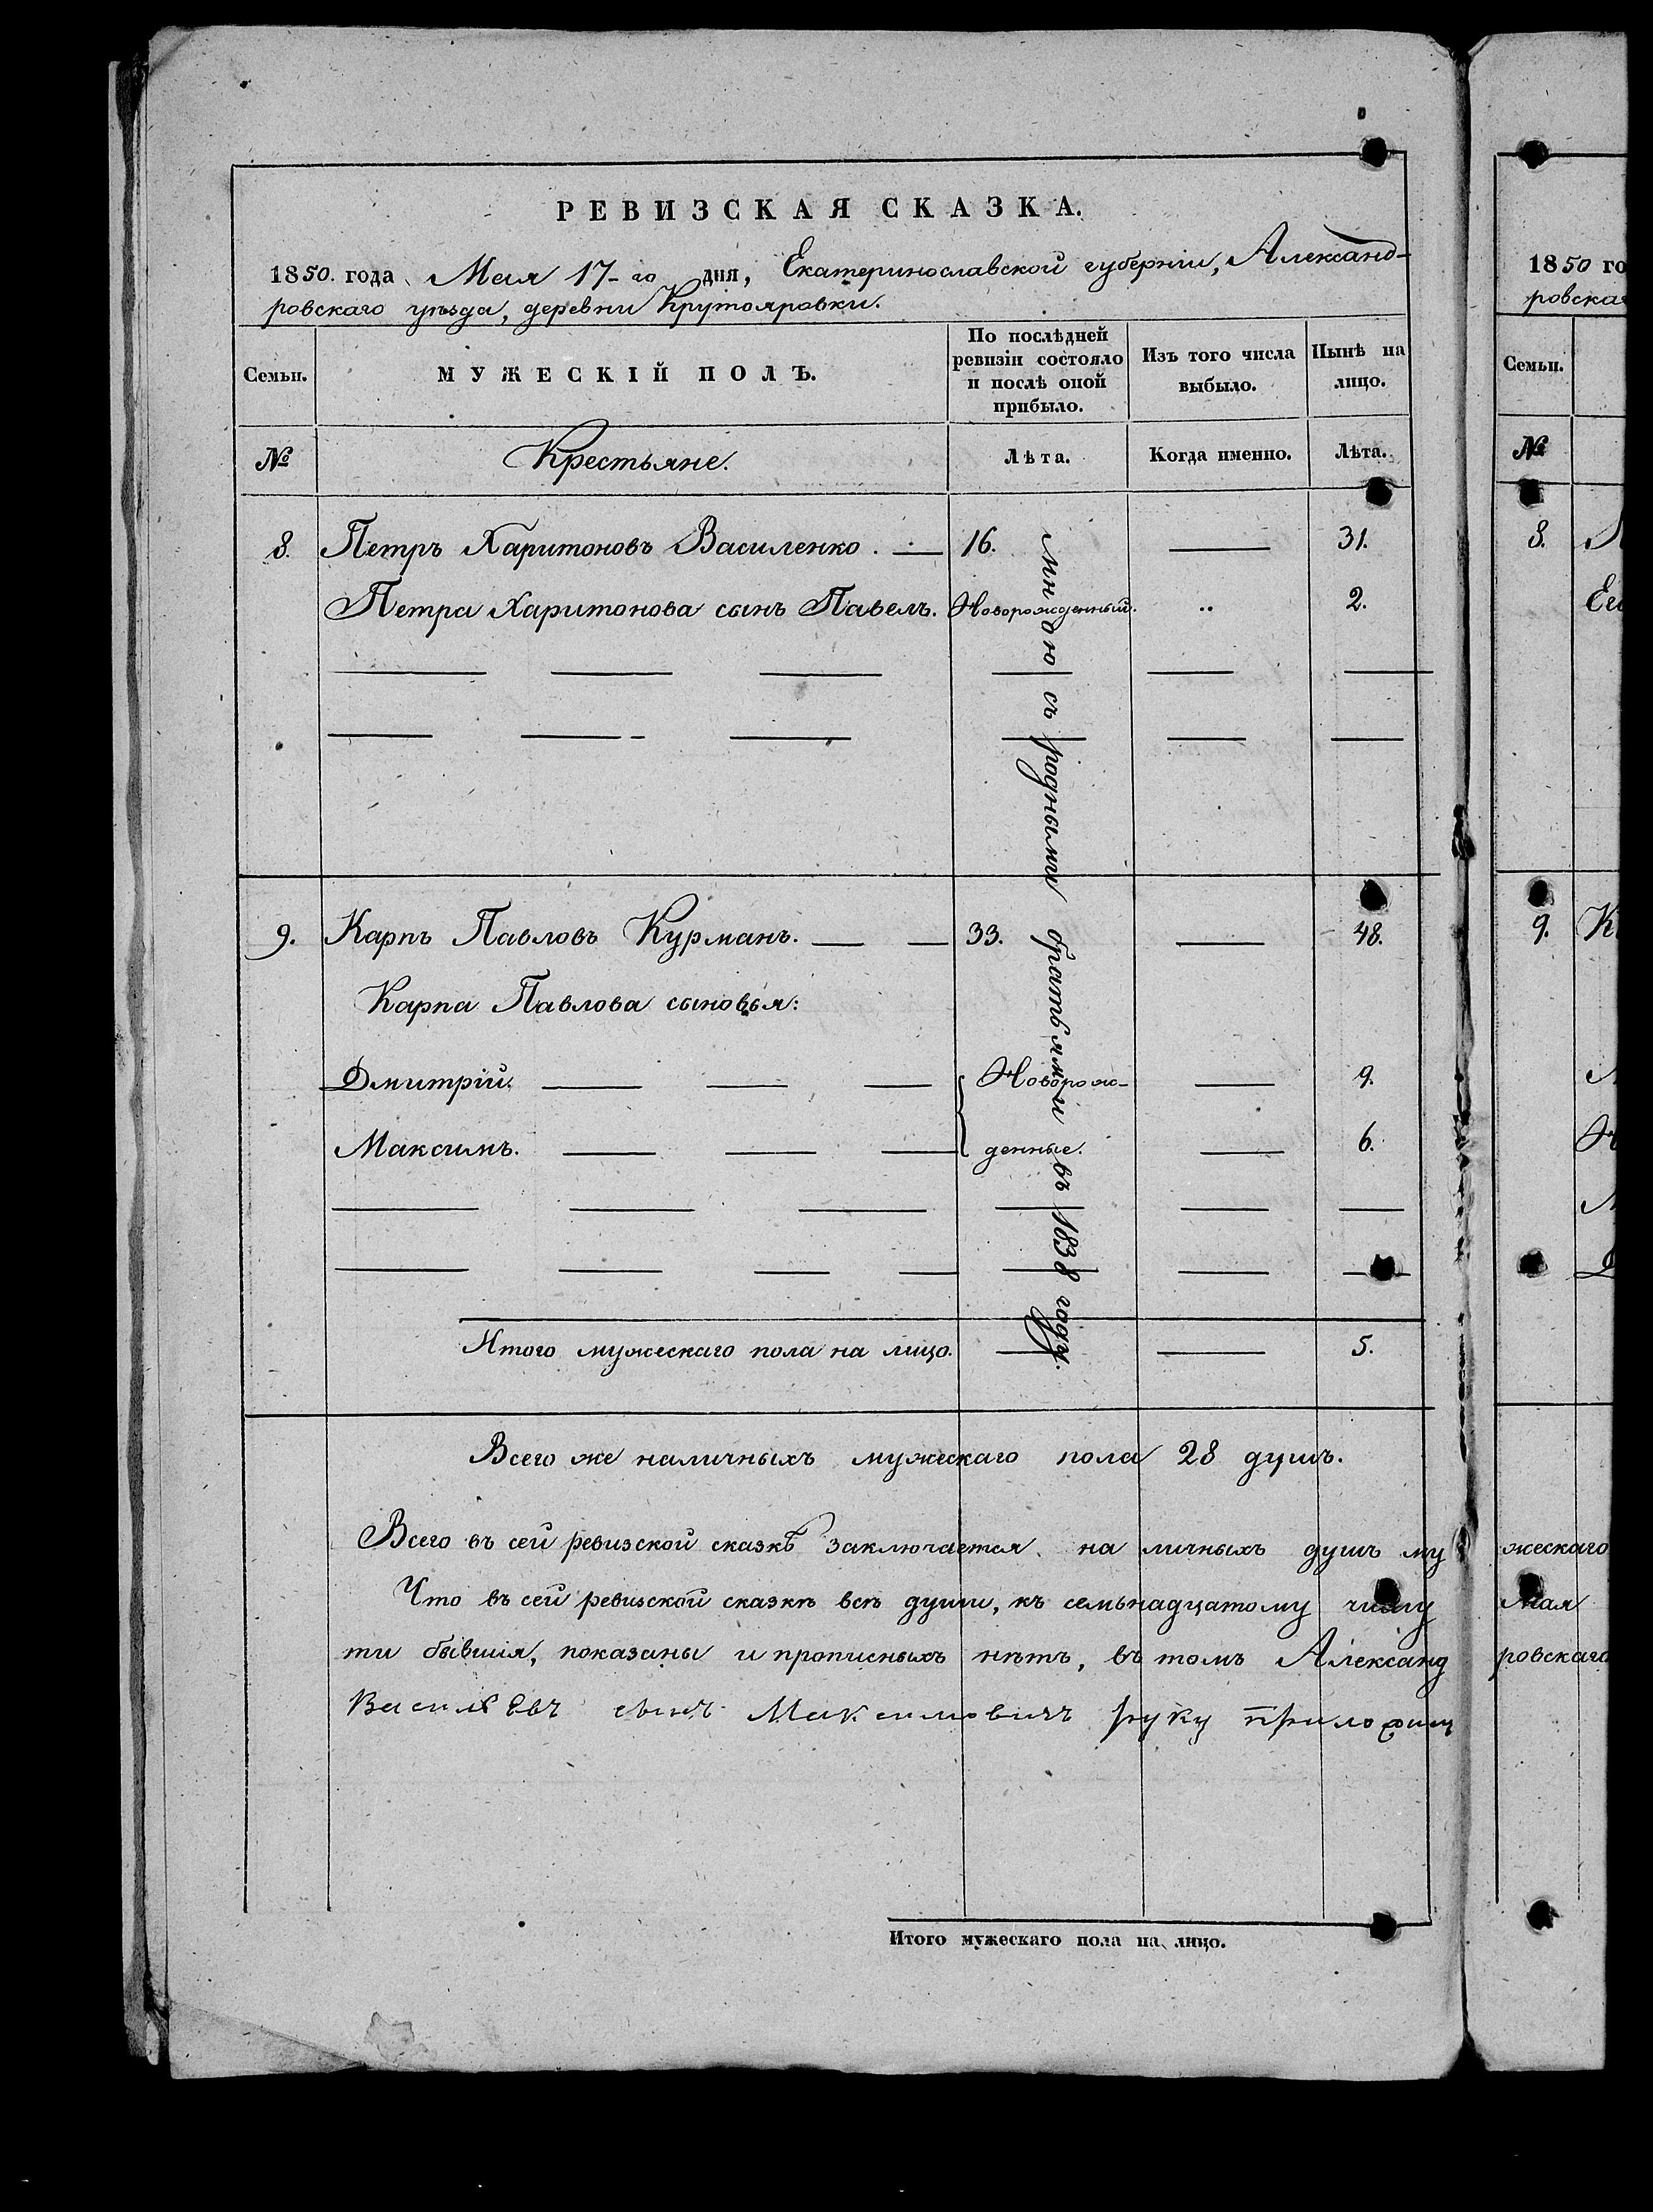 РЕВИЗСКАЯ СКАЗКА.
1850. года Мая 17-го дня, Екатеринославской губерніи, Александ-
ровскаго уѣзда, деревни Крутояровки.
Семьи. МУЖЕСКІЙ ПОЛЪ. По послѣдней ревизіи состояло и послѣ оной прибыло. Изъ того числа выбыло. Нынѣ на лицо.
№ Крестьяне. Лѣта. Когда именно. Лѣта.
8. Петръ Харитоновъ Василенко. — 16. — 31.
Петра Харитонова сынъ Павелъ. Новорожденный. .. 2.
9. Карпъ Павловъ Курманъ. — — 33. — 48.
Карпа Павлова сыновья:
Дмитрій. — — — Новорож- — 9.
Максимъ. — — — денные. — 6.
мною съ родными братьями въ 1838 году.
Итого мужескаго пола на лицо. — — 5.
Всего же наличныхъ мужескаго пола 28 душъ.
Всего въ сей ревизской сказкѣ заключается на личныхъ душъ му
Что въ сей ревизской сказкѣ всѣ души, къ семьнадцатому числу
ти бывшія, показаны и прописныхъ нѣтъ, въ томъ Александ
Васильевъ сынъ Максимовичъ руку приложил
Итого мужескаго пола на лицо.
1850 го
ровская
Семьи.
№
8.
Ег
9. К
жескаго
Мая
ровскаго